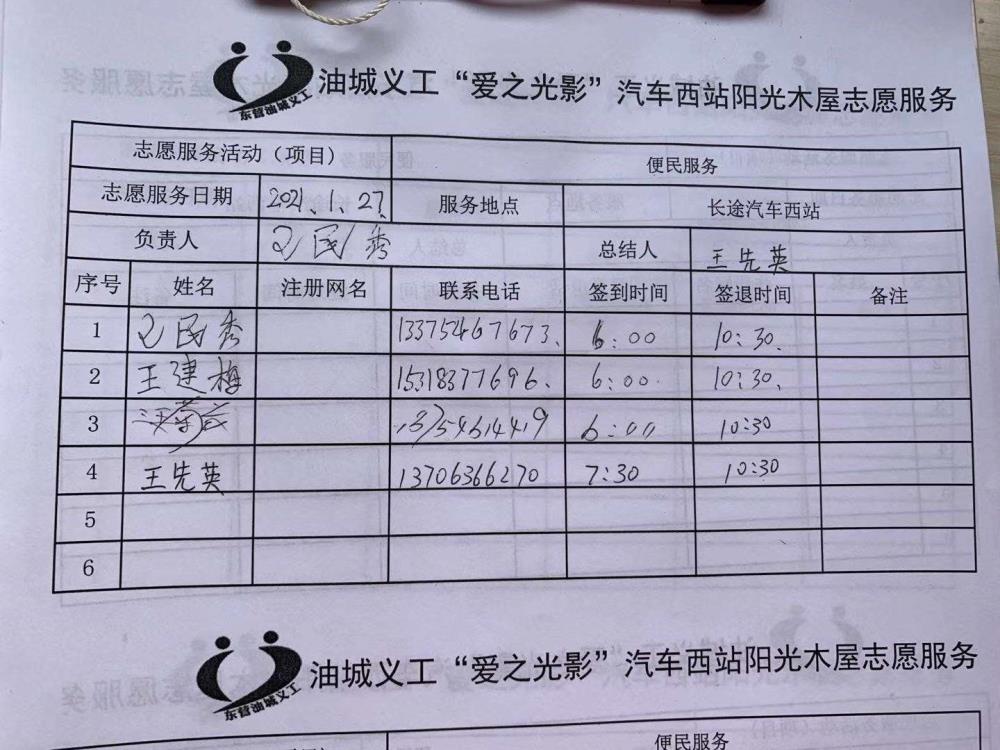 东营油城义工
油城义工“爱之光影”汽车西站阳光木屋志愿服务
志愿服务活动（项目） 便民服务
志愿服务日期 2021.1.27. 服务地点 长途汽车西站
负责人 民秀 总结人 王先英
序号 姓名 注册网名 联系电话 签到时间 签退时间 备注
1 民秀 13375467673. 6:00 10:30.
2 王建梅 15318377696. 6:00. 10:30.
3 13754614419 6:00 10:30
4 王先英 13706366270 7:30 10:30
5
6
东营油城义工
油城义工“爱之光影”汽车西站阳光木屋志愿服务
便民服务